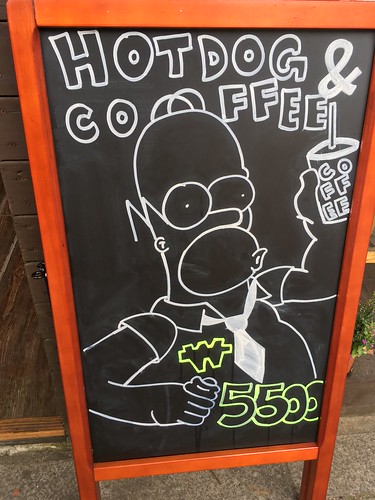 HOTDOG &
COFFEE
COFFEE
W
5500